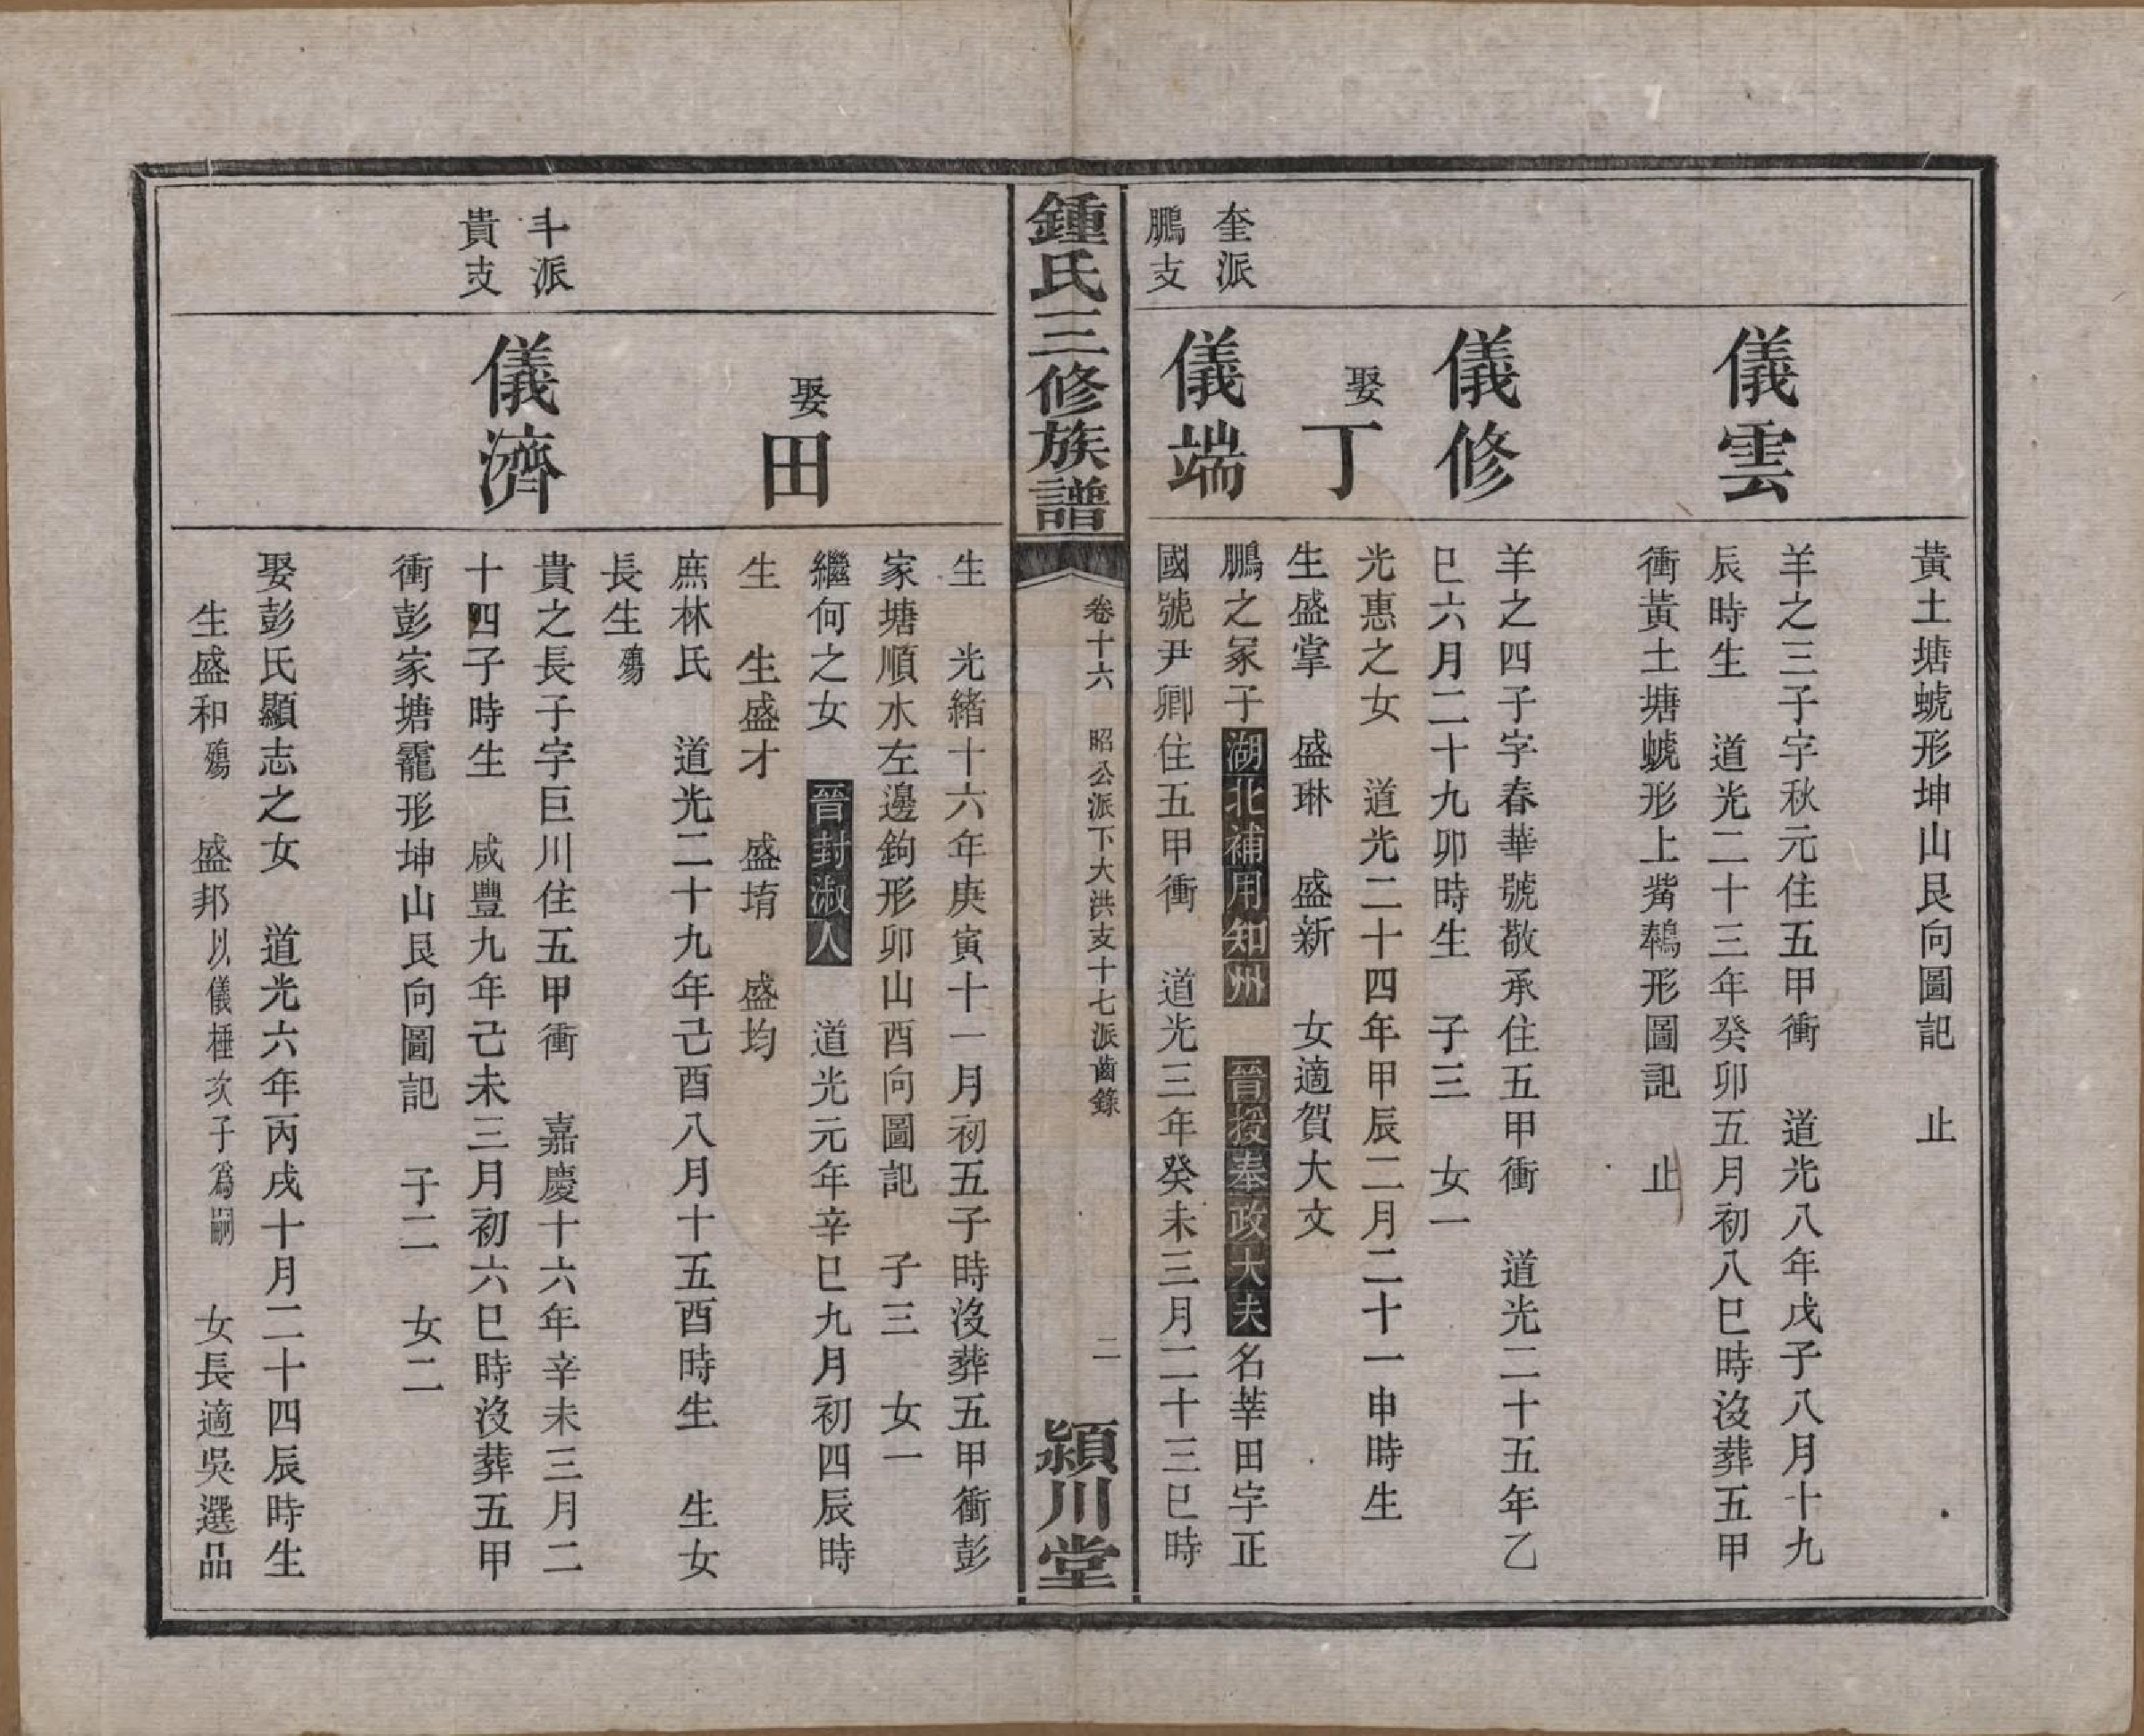 黃土塘虩形坤山艮向圖記　止
儀雲
羊之三子字秋元住五甲衝　道光八年戊子八月十九
辰時生　道光二十三年癸卯五月初八巳時沒葬五甲
衝黃土塘虩形上觜鶉形圖記　止
儀修
羊之四子字春華號敬承住五甲衝　道光二十五年乙
巳六月二十九卯時生　子三　女一
娶丁
光惠之女　道光二十四年甲辰二月二十一申時生
生盛掌　盛琳　盛新　女適賀大文
奎派
鵬支
儀端
鵬之冢子湖北補用知州　晉授奉政大夫名莘田字正
國號尹卿住五甲衝　道光三年癸未三月二十三巳時
鍾氏三修族譜
卷十六　昭公派下大洪支十七派齒錄
二
潁川堂
生　光緒十六年庚寅十一月初五子時沒葬五甲衝彭
家塘順水左邊鉤形卯山酉向圖記　子三　女一
娶田
繼何之女　晉封淑人　道光元年辛巳九月初四辰時
生　生盛才　盛堉　盛均
庶林氏　道光二十九年己酉八月十五酉時生　生女
長生殤
斗派
貴支
儀濟
貴之長子字巨川住五甲衝　嘉慶十六年辛未三月二
十四子時生　咸豐九年己未三月初六巳時沒葬五甲
衝彭家塘龗形坤山艮向圖記　子二　女二
娶彭氏顯志之女　道光六年丙戌十月二十四辰時生
生盛和殤　盛邦以儀棰次子爲嗣　女長適吳選品